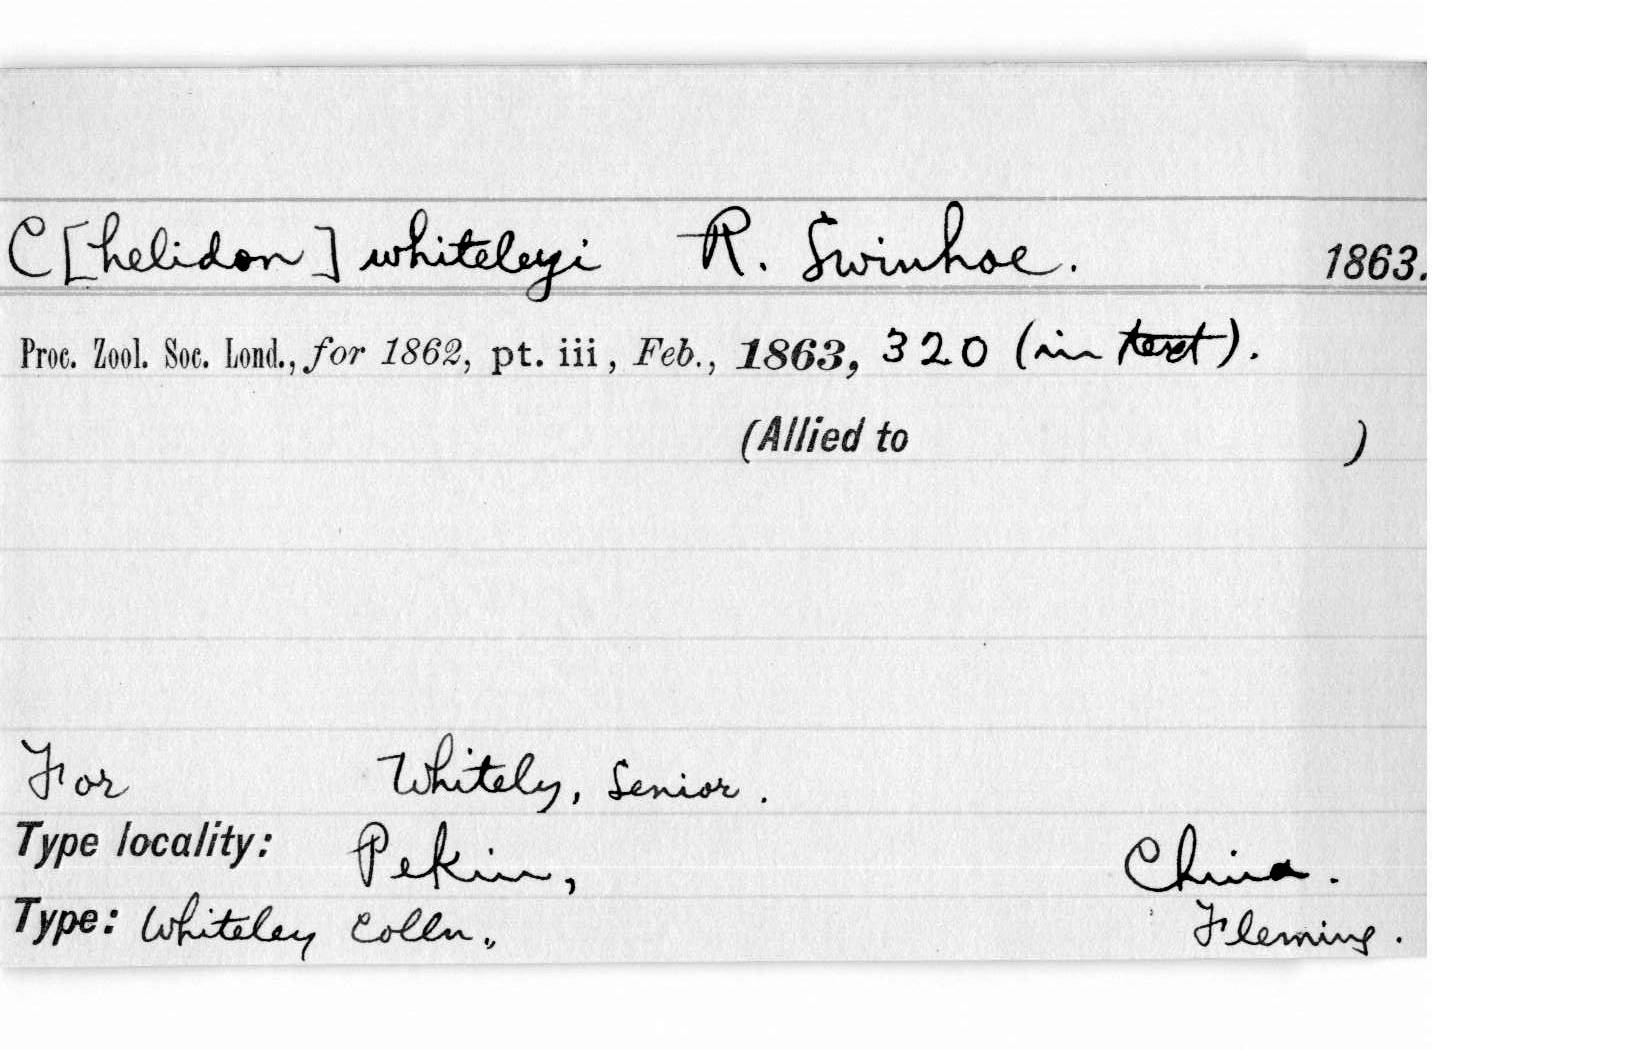 C[helidon] whiteleyi R. Swinhoe. 1863.
Proc. Zool. Soc. Lond., for 1862, pt. iii, Feb., 1863, 320 (in text).
(Allied to )
For Whitely, Senior.
Type locality: Pekin, China.
Type: Whiteley Colln. Fleming.